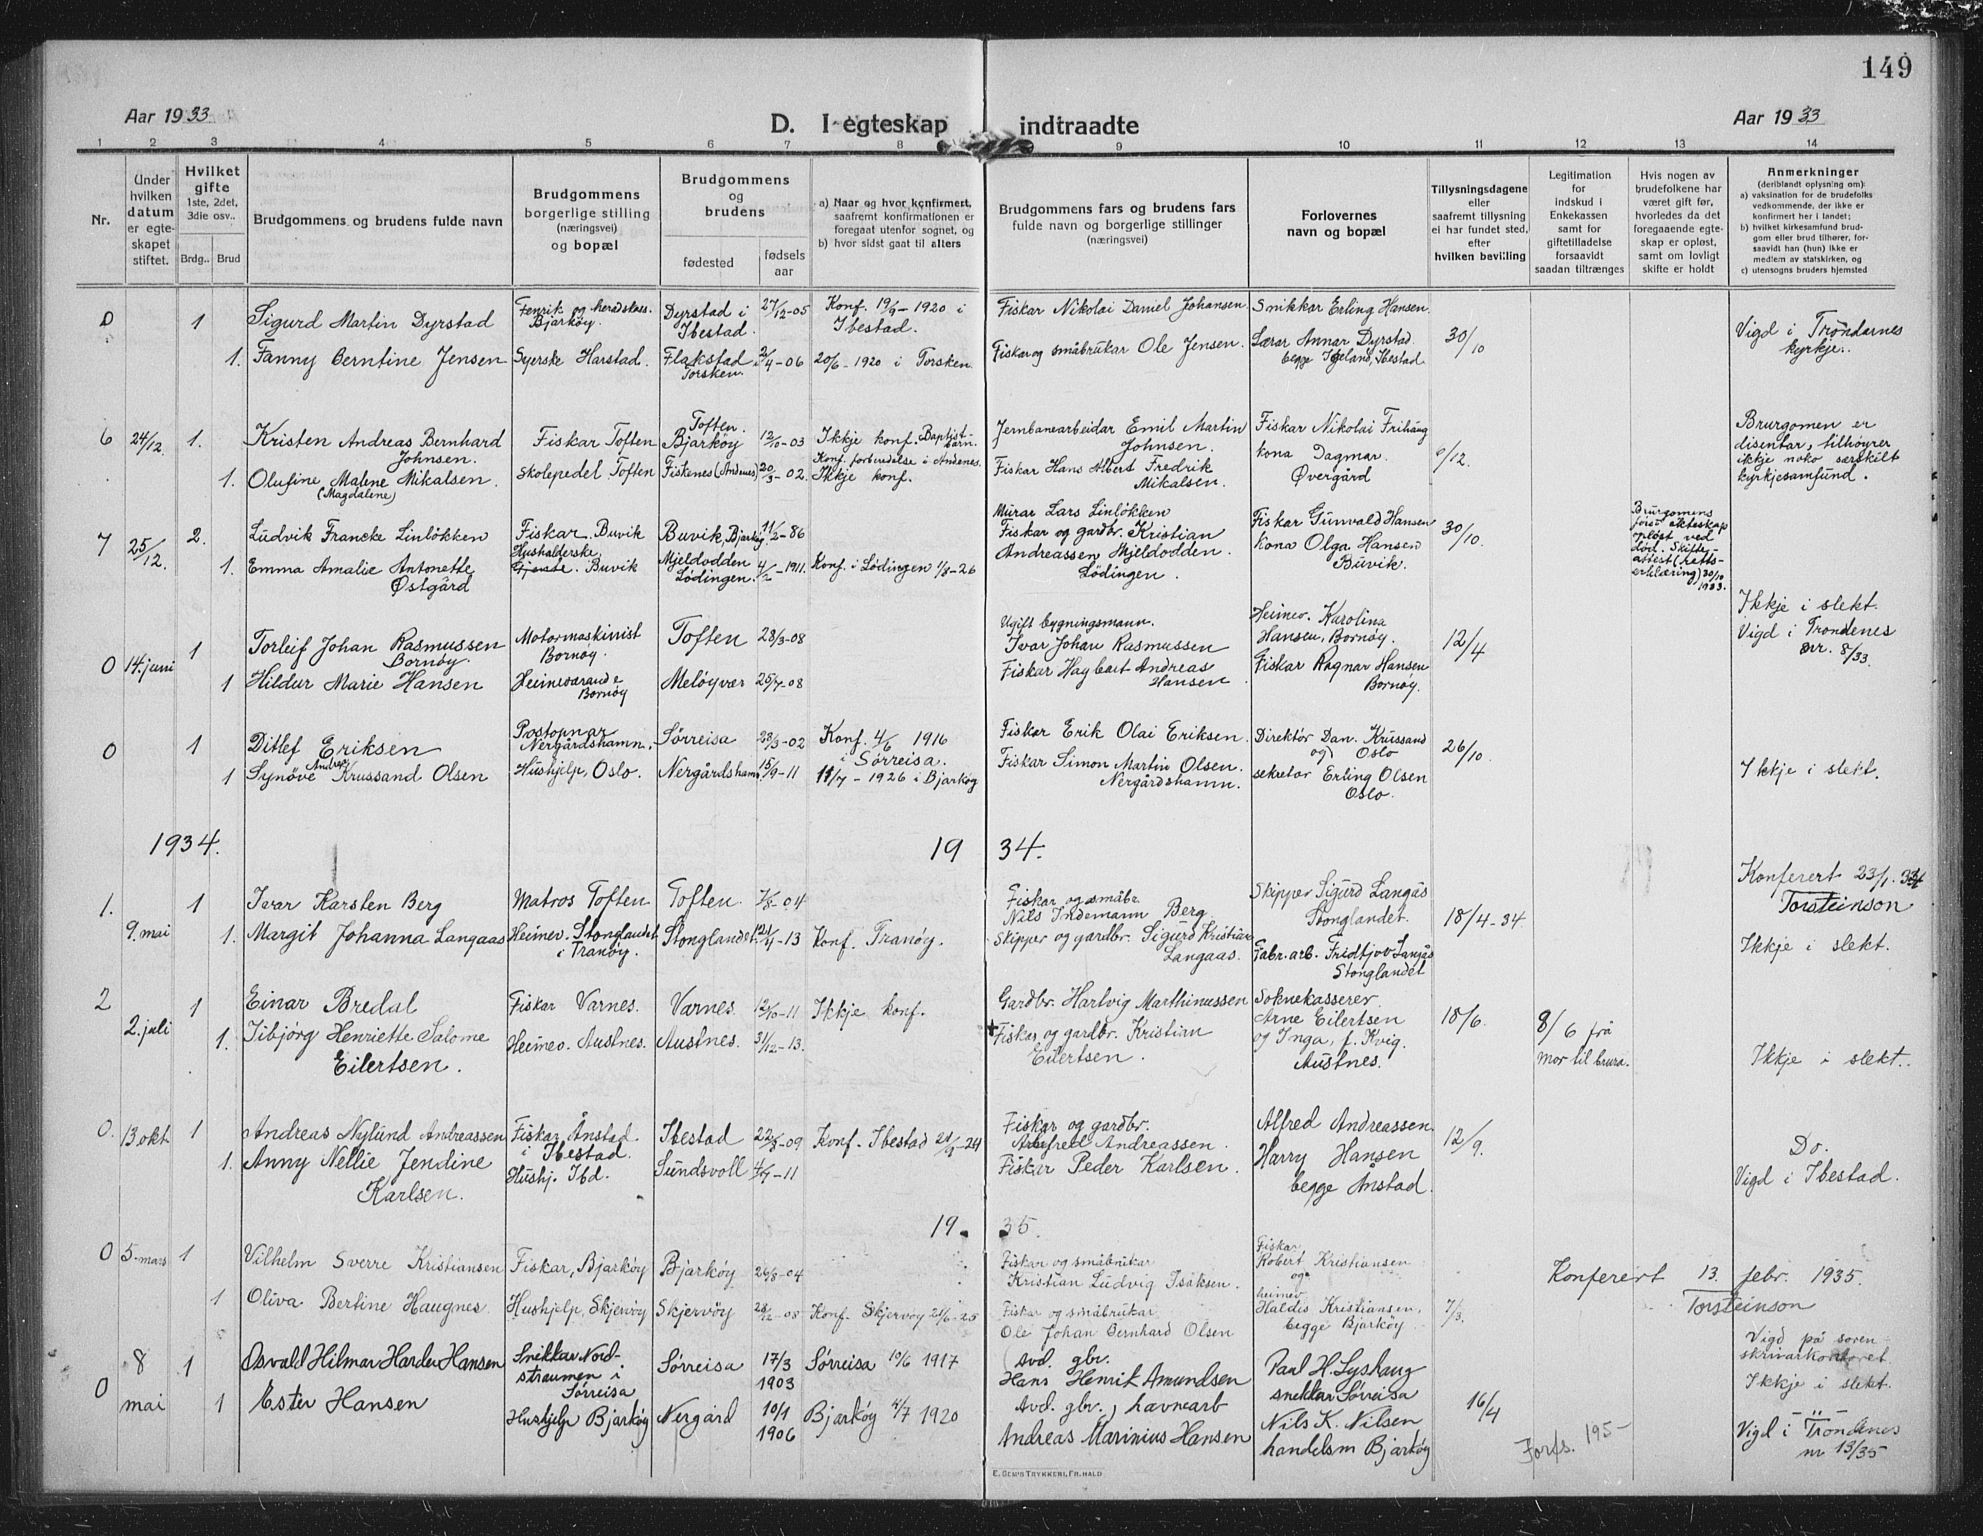 149
Aar 1933
D. I egteskap indtraadte
Aar 1933
1 2 3 4 5 6 7 8 9 10 11 12 13 14
Nr.
Under hvilken datum er egteskapet stiftet.
Hvilket gifte 1ste, 2det, 3die osv..
Brdg.. Brud
Brudgommens og brudens fulde navn
Brudgommens borgerlige stilling (næringsvei) og bopæl
Brudgommens og brudens
fødested
fødsels aar
a) Naar og hvor konfirmert, saafremt konfirmationen er foregaat utenfor sognet, og
b) hvor sidst gaat til alters
Brudgommens fars og brudens fars fulde navn og borgerlige stillinger (næringsvei)
Forlovernes navn og bopæl
Tillysningsdagene eller saafremt tillysning ei har fundet sted, efter hvilken bevilling
Legitimation for indskud i Enkekassen samt for giftetilladelse forsaavidt saadan tiltrænges
Hvis nogen av brudefolkene har været gift før, hvorledes da det foregaaende egteskap er opløst, samt om lovligt skifte er holdt
Anmerkninger (deriblandt oplysning om):
a) vaksination for de brudefolks vedkommende, der ikke er konfirmert her i landet;
b) hvilket kirkesamfund brudgom eller brud tilhører, forsaavidt han (hun) ikke er medlem av statskirken, og
c) utensogns bruders hjemsted
0 1 Sigurd Martin Dyrstad Fenrik og heradskass. Bjarkøy. Dyrstad i Ibestad. 27/12-05 Konf. 19/9-1920 i Ibestad. Fiskar Nikolai Daniel Johansen Snikkar Erling Hansen. 30/10 Vigd i Trondarnes kyrkje.
1. Fanny Berntine Jensen Syerske Harstad. Flakstad Torsken. 2/4-06 20/6-1920 i Torsken. Fiskar og småbrukar Ole Jensen. Lærar Annar Dyrstad. begge Igeland, Ibestad.
6 24/12. 1. Kristen Andreas Bernhard Johnsen. Fiskar Toften Toften. Bjarkøy 12/10-03 Ikkje konf. Baptistbarn. Jernbanearbeidar Emil Martin Johnsen. Fiskar Nikolai Frihaug 9/12. Brurgomen er disentar, tilhøyrer ikkje noko særskilt kyrkjesamfund.
1. Olufine Malene (Magdalene) Mikalsen. Skolepedel Toften Fiskenes (Andenes) 20/3-02. Konf. forberedelse i Andenes. Ikkje konf. Fiskar Hans Albert Fredrik Mikalsen. kona Dagmar. Øvergård
7 25/12. 2. Ludvik Francke Linløkken Fiskar Buvik Buvik, Bjarkøy. 11/2-86 Murar Lars Linløkken Fiskar Gunvald Hansen 30/10. Brurgomens förre ekteskap opløst ved död. Skifteattest (rettserklæring) 30/10 1933.
1. Emma Amalie Antonette Østgård Hushalderske Buvik Mjeldodden Lödingen. 4/2-1911. Konf. i Lødingen 1/8-26 Fiskar og gardbr. Kristian Andreassen Mjeldodden. Lödingen. Kona Olga Hansen Buvik. Ikkje i slekt.
0 14. juni 1 Torleif Johan Rasmussen Bornøy. Motormaskinist Bornøy. Toften 28/3-08 Ugift bygningsmann. Ivar Johan Rasmussen Heimev. Karolina Hansen, Bornøy. 12/4 Vigd i Trondenes nr. 8/33.
1 Hildur Marie Hansen Heimeværande Bornøy Meløyvær 25/7-08 Fiskar Haybart Andreas Hansen Fiskar Ragnar Hansen Bornøy.
0 1 Ditlef Eriksen Postopnar Nergårdshamn. Sørreisa 28/3-02 Konf. 4/6 1916 i Sørreisa. Fiskar Erik Olai Eriksen. Direktör Dan. Krussand og Oslo 26/10.
1 Synöve Andrea Krussand Olsen Hushjelp, Oslo. Nergårdshamn 15/9-11 11/7-1926 i Bjarkøy Fiskar Simon Martin Olsen. Nergårdshamn. sekretær Erling Olsen Oslo. Ikkje i slekt.
1934. 19 34.
Konferert 23/1.34 Torsteinson
1. 9. mai 1 Ivar Karsten Berg Matros Toften Toften. 7/8-04 Fiskar og småbr. Nils Indemann Berg Skipper Sigurd Langås Stonglandet. 18/4-34
1. Margit Johanna Langaas Heimev. Stonglandet i Tranøy. Stonglandet. 24/4-13 Konf. Tranöy. Skipper og gardbr. Sigurd Kristian Langaas. Fabr.arb. Fridtjov Langås Stonglandet Ikkje i slekt.
2 2. juli 1 Einar Bredal Fiskar Varnes. Varnes. 12/10-11 Ikkje konf. Gardbr. Hartvig Marthinussen Soknekasserer. Arne Eilertsen 18/6. 8/6 frå mor til brura.
1. Jibjörg Henriette Salome Eilertsen. Heimev. Austnes. Austnes. 31/12-13. + Fiskar og gardbr. Kristian Eilertsen. og Inga, f. Kvig. Austnes. Ikkje i slekt.
0. 13 okt 1 Andreas Nylund Andreassen Fiskar Ånstad. i Ibestad. Ibestad 22/8-09 Konf. Ibestad 21/9-24 Fiskar og gardbr. Alfred Andreassen. Alfred Andreassen 12/9. Do.
1. Anny Nellie Jendine Karlsen. Hushj. Ibd. Sundsvoll 4/7-11 Fiskar Peder Karlsen. Harry Hansen begge Ånstad. Vigd i Ibestad.
19. 35.
0 5. mars 1 Vilhelm Sverre Kristiansen Fiskar, Bjarkøy Bjarkøy 26/8-04 Fiskar og småbrukar Kristian Ludvig Isaksen. Fiskar Robert Kristiansen og Konferert 13. febr. 1935. Torsteinson
1 Oliva Bertine Haugnes. Hushjelp, Skjervøy Skjervøy 28/12-08 Konf. Skjervøy 21/6-25 Fiskar og småbrukar Ole Johan Bernhard Olsen heimev. Haldis Kristiansen, begge Bjarkøy 7/3.
0 8 mai 1 Osvald Hilmar Harder Hansen Snikkar Nordstraumen i Sørreisa Sørreisa 17/3 1903 Sørreisa 10/6 1917 Avd. gbr. Hans Henrik Amundsen Paul H. Lyshaug snekkar Sørreisa 16/4 Vigd på sorenskrivarkontoret. Ikkje i slekt.
1 Ester Hansen Hushjelp Bjarkøy Nergård 10/1 1906 Bjarkøy 4/7 1920 Avd. gbr., havnearb Andreas Marinius Hansen Nils K. Nilsen handelsm Bjarkøy Forfs. 195- Vigd i Trondenes nr 13/35
E. SEM'S TRYKKERI, FR.HALD